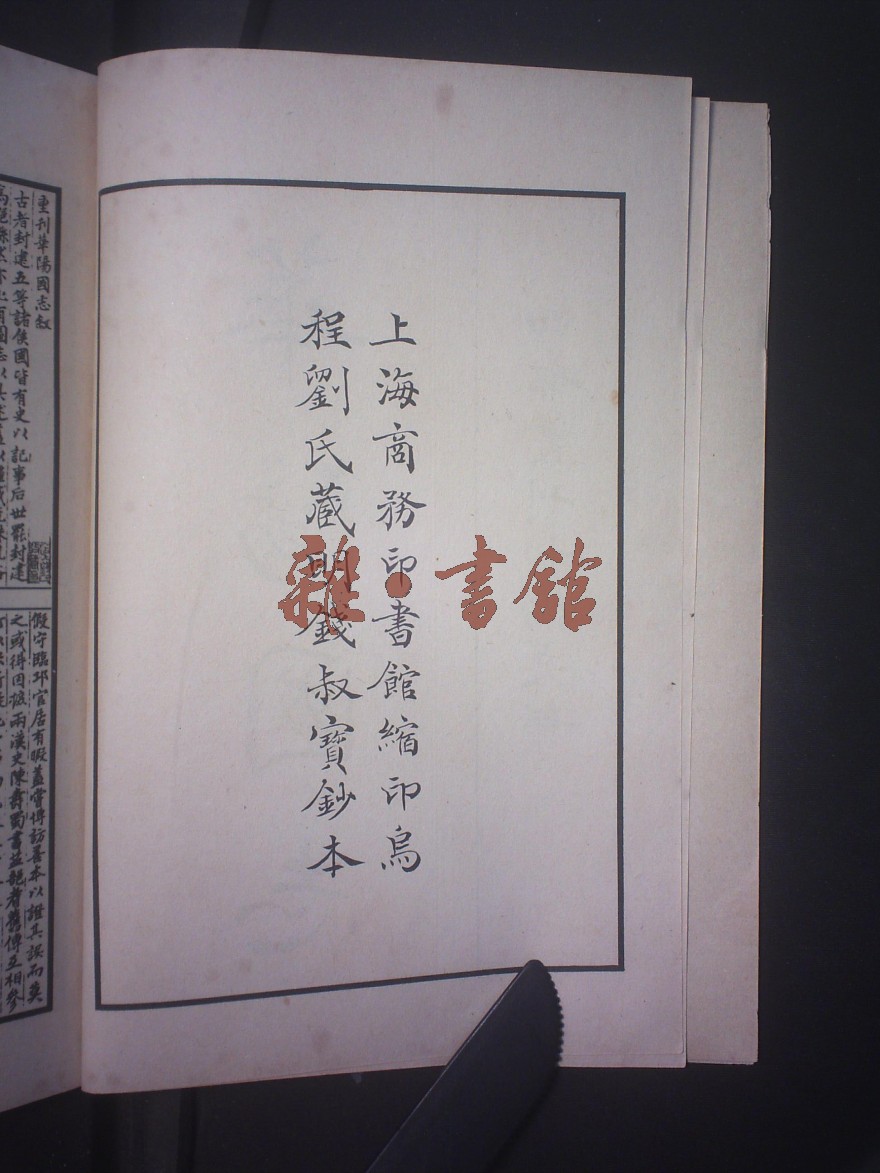 上海商務印書館縮印烏
程劉氏藏明錢叔寶鈔本
雜·書館
重刊華陽國志敘
古者封建五等諸侯國皆有史以記事后世罷封建
假守臨邛官居有暇蓋嘗博訪善本以證其誤而莫
之或得因摭兩漢史陳壽蜀書益部耆舊傳互相參